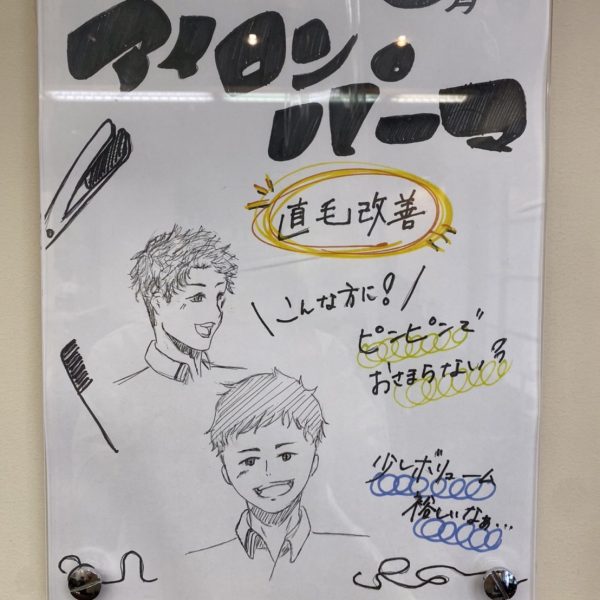 アイロン
パーマ
直毛改善
\こんな方に!/
ピンピンで
おさまらない?
少しボリューム
欲しいなぁ…